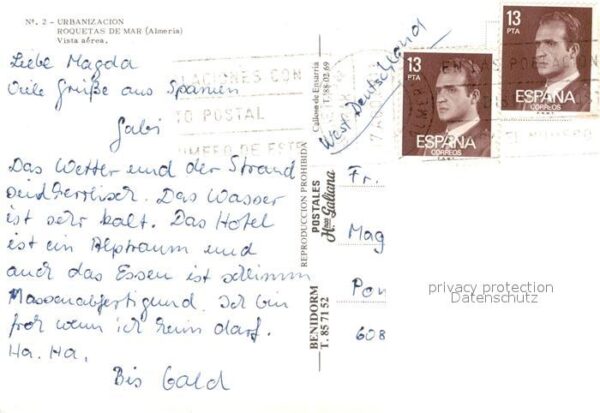 Nº. 2 - URBANIZACION
ROQUETAS DE MAR (Almeria)
Vista aérea.
Liebe Magda
Viele Grüße aus Spanien
Gabi
Das Wetter und der Strand
sind herrlich. Das Wasser
ist sehr kalt. Das Hotel
ist ein Alptraum und
auch das Essen ist schlimm
Massenabfertigung. Ich bin
froh wenn ich heim darf.
Ha. Ha.
Bis bald
REPRODUCCION PROHIBIDA
POSTALES
Hnos Galiana
BENIDORM
T. 85 71 52
T. 88 02 69
West Deutschland
13
PTA
ESPAÑA
CORREOS
F.N.M.T.
13
PTA
ESPAÑA
CORREOS
F.N.M.T.
LACIONES CON
TO POSTAL
UMERO DE ESTE
EL NUMERO
Fr.
Mag
Pon
608
privacy protection
Datenschutz